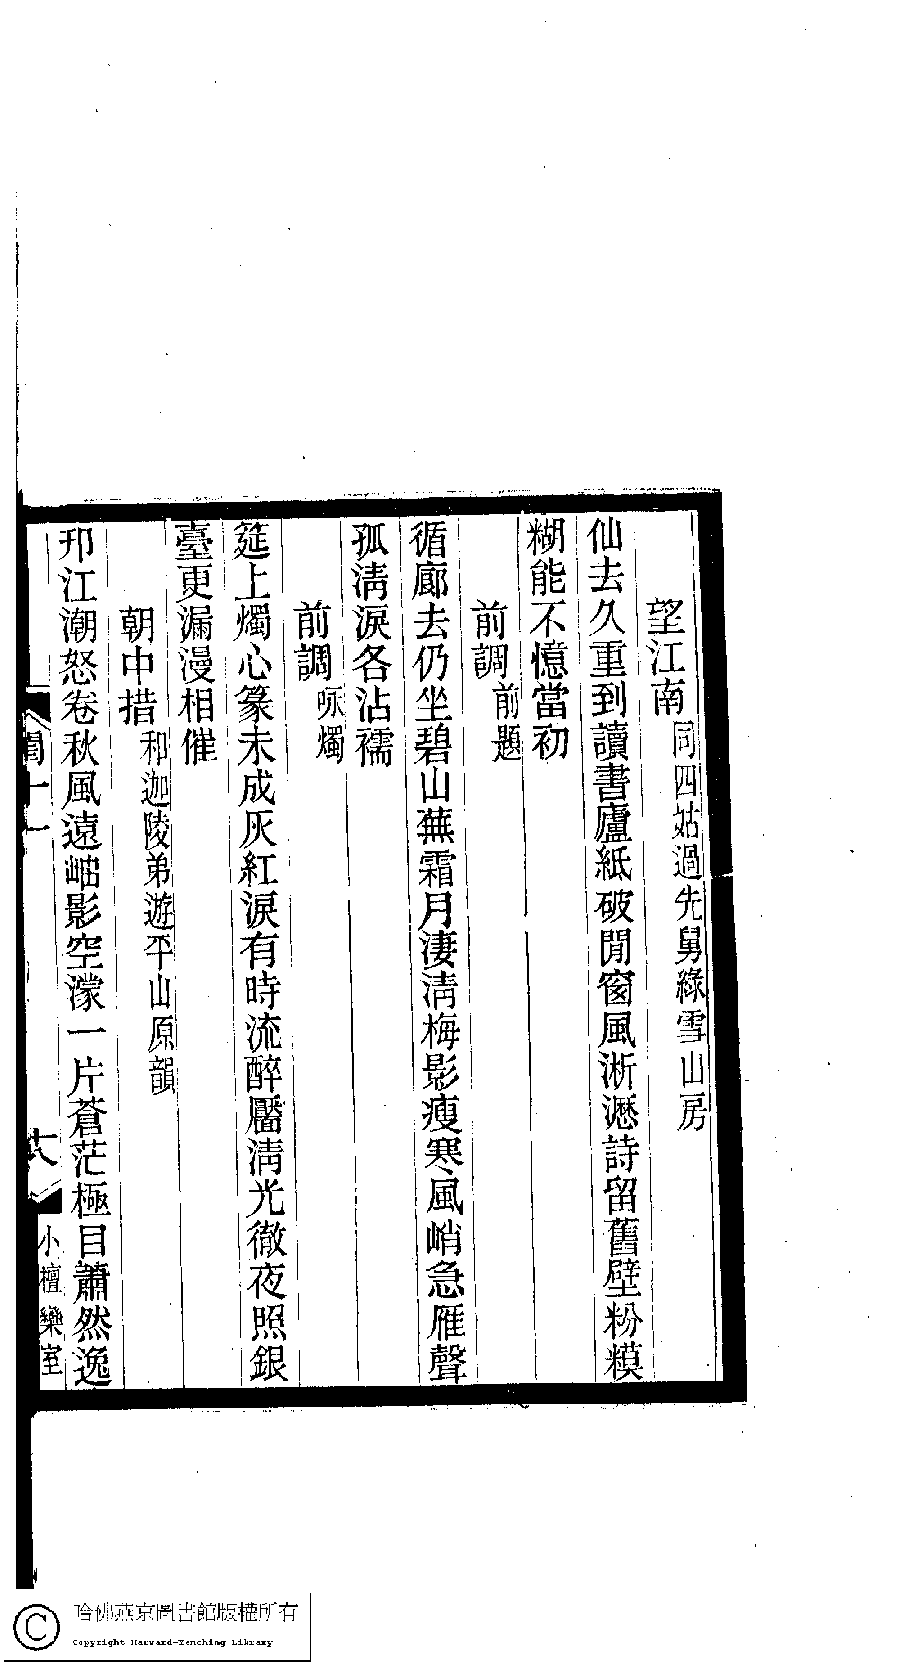 望江南 同四姑過先舅綠雪山房
仙去久重到讀書廬紙破閒窗風淅瀝詩留舊壁粉糢
糊能不憶當初
前調 前題
循廊去仍坐碧山蕪霜月淒淸梅影瘦寒風峭急雁聲
孤淸淚各沾襦
前調 咏燭
筵上燭心篆未成灰紅淚有時流醉靨淸光徹夜照銀
臺更漏漫相催
朝中措 和迦陵弟遊平山原韻
邗江潮怒卷秋風遠岫影空濛一片蒼茫極目蕭然逸
閨十一
十八
小檀欒室
哈佛燕京圖書館版權所有
Copyright Harvard-Yenching Library